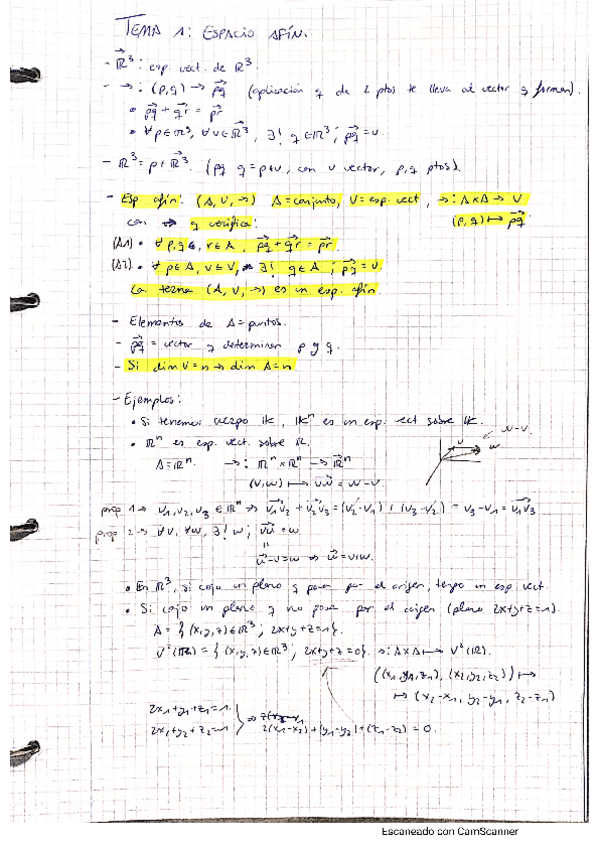 TEMA 1: ESPACIO AFÍN.
- ℝ⃗³: esp. vect. de ℝ³.
- →: (p,q) → p͞q⃗ (aplicación q de 2 ptos te lleva al vector q forman).
• pq⃗ + qr⃗ = pr⃗
• ∀p∈ℝ³, ∀v∈ℝ⃗³, ∃! q∈ℝ³; pq⃗ = v.
- ℝ³ = p + ℝ⃗³. (pq q = p+v, con v vector, p,q ptos).
- Esp afín: (A, V, →) A = conjunto, V = esp. vect, →: A×A → V
con → q verifica: (p,q) ↦ pq⃗
(A1) • ∀ p,q, r∈A, pq⃗ + qr⃗ = pr⃗
(A2) • ∀ p∈A, v∈V, ∃! q∈A; pq⃗ = v.
La terna (A, V, →) es un esp. afín.
- Elementos de A = puntos.
- pq⃗ = vector q determinan p y q.
- Si dim V = n → dim A = n
- Ejemplos:
• Si tenemos cuerpo 𝕂, 𝕂ⁿ es un esp. vect sobre 𝕂.
• ℝⁿ es esp. vect. sobre ℝ.
A = ℝⁿ. →: ℝⁿ × ℝⁿ → ℝ⃗ⁿ
(v,w) ↦ vw⃗ = w - v.
v w w-v.
prop 1 → v₁,v₂,v₃ ∈ ℝⁿ → v₁v₂⃗ + v₂v₃⃗ = (v₂-v₁) + (v₃-v₂) = v₃-v₁ = v₁v₃⃗
prop 2 → ∀v, ∀w, ∃! u; vu⃗ = w
=
u-v = w → u = v+w.
• En ℝ³, si cojo un plano q pasa por el origen, tengo un esp vect.
• Si cojo un plano q no pasa por el origen (plano 2x+y+z=1).
A = {(x,y,z)∈ℝ³; 2x+y+z=1}.
V²(ℝ) = {(x,y,z)∈ℝ³; 2x+y+z=0}. →: A×A ↦ V²(ℝ).
((x₁,y₁,z₁), (x₂,y₂,z₂)) ↦
↦ (x₂-x₁, y₂-y₁, z₂-z₁)
2x₁+y₁+z₁=1
2x₂+y₂+z₂=1 } ⇒ 2(x₁-x₂)+(y₁-y₂)+(z₁-z₂) = 0.
Escaneado con CamScanner